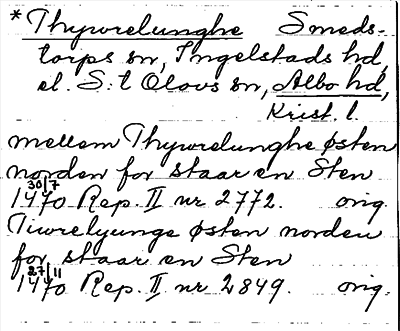 * Thywrelunghe Smeds-
torps sn, Ingelstads hd,
el. S:t Olovs sn, Albo hd,
Krist. l.
mellem Thywrelunghe østen
norden for staar en Sten
1470 30/7 Rep. II nr 2772. orig.
Tiwrelyunge østen norden
for staar en Sten
1470 27/11 Rep. II nr 2849. orig.